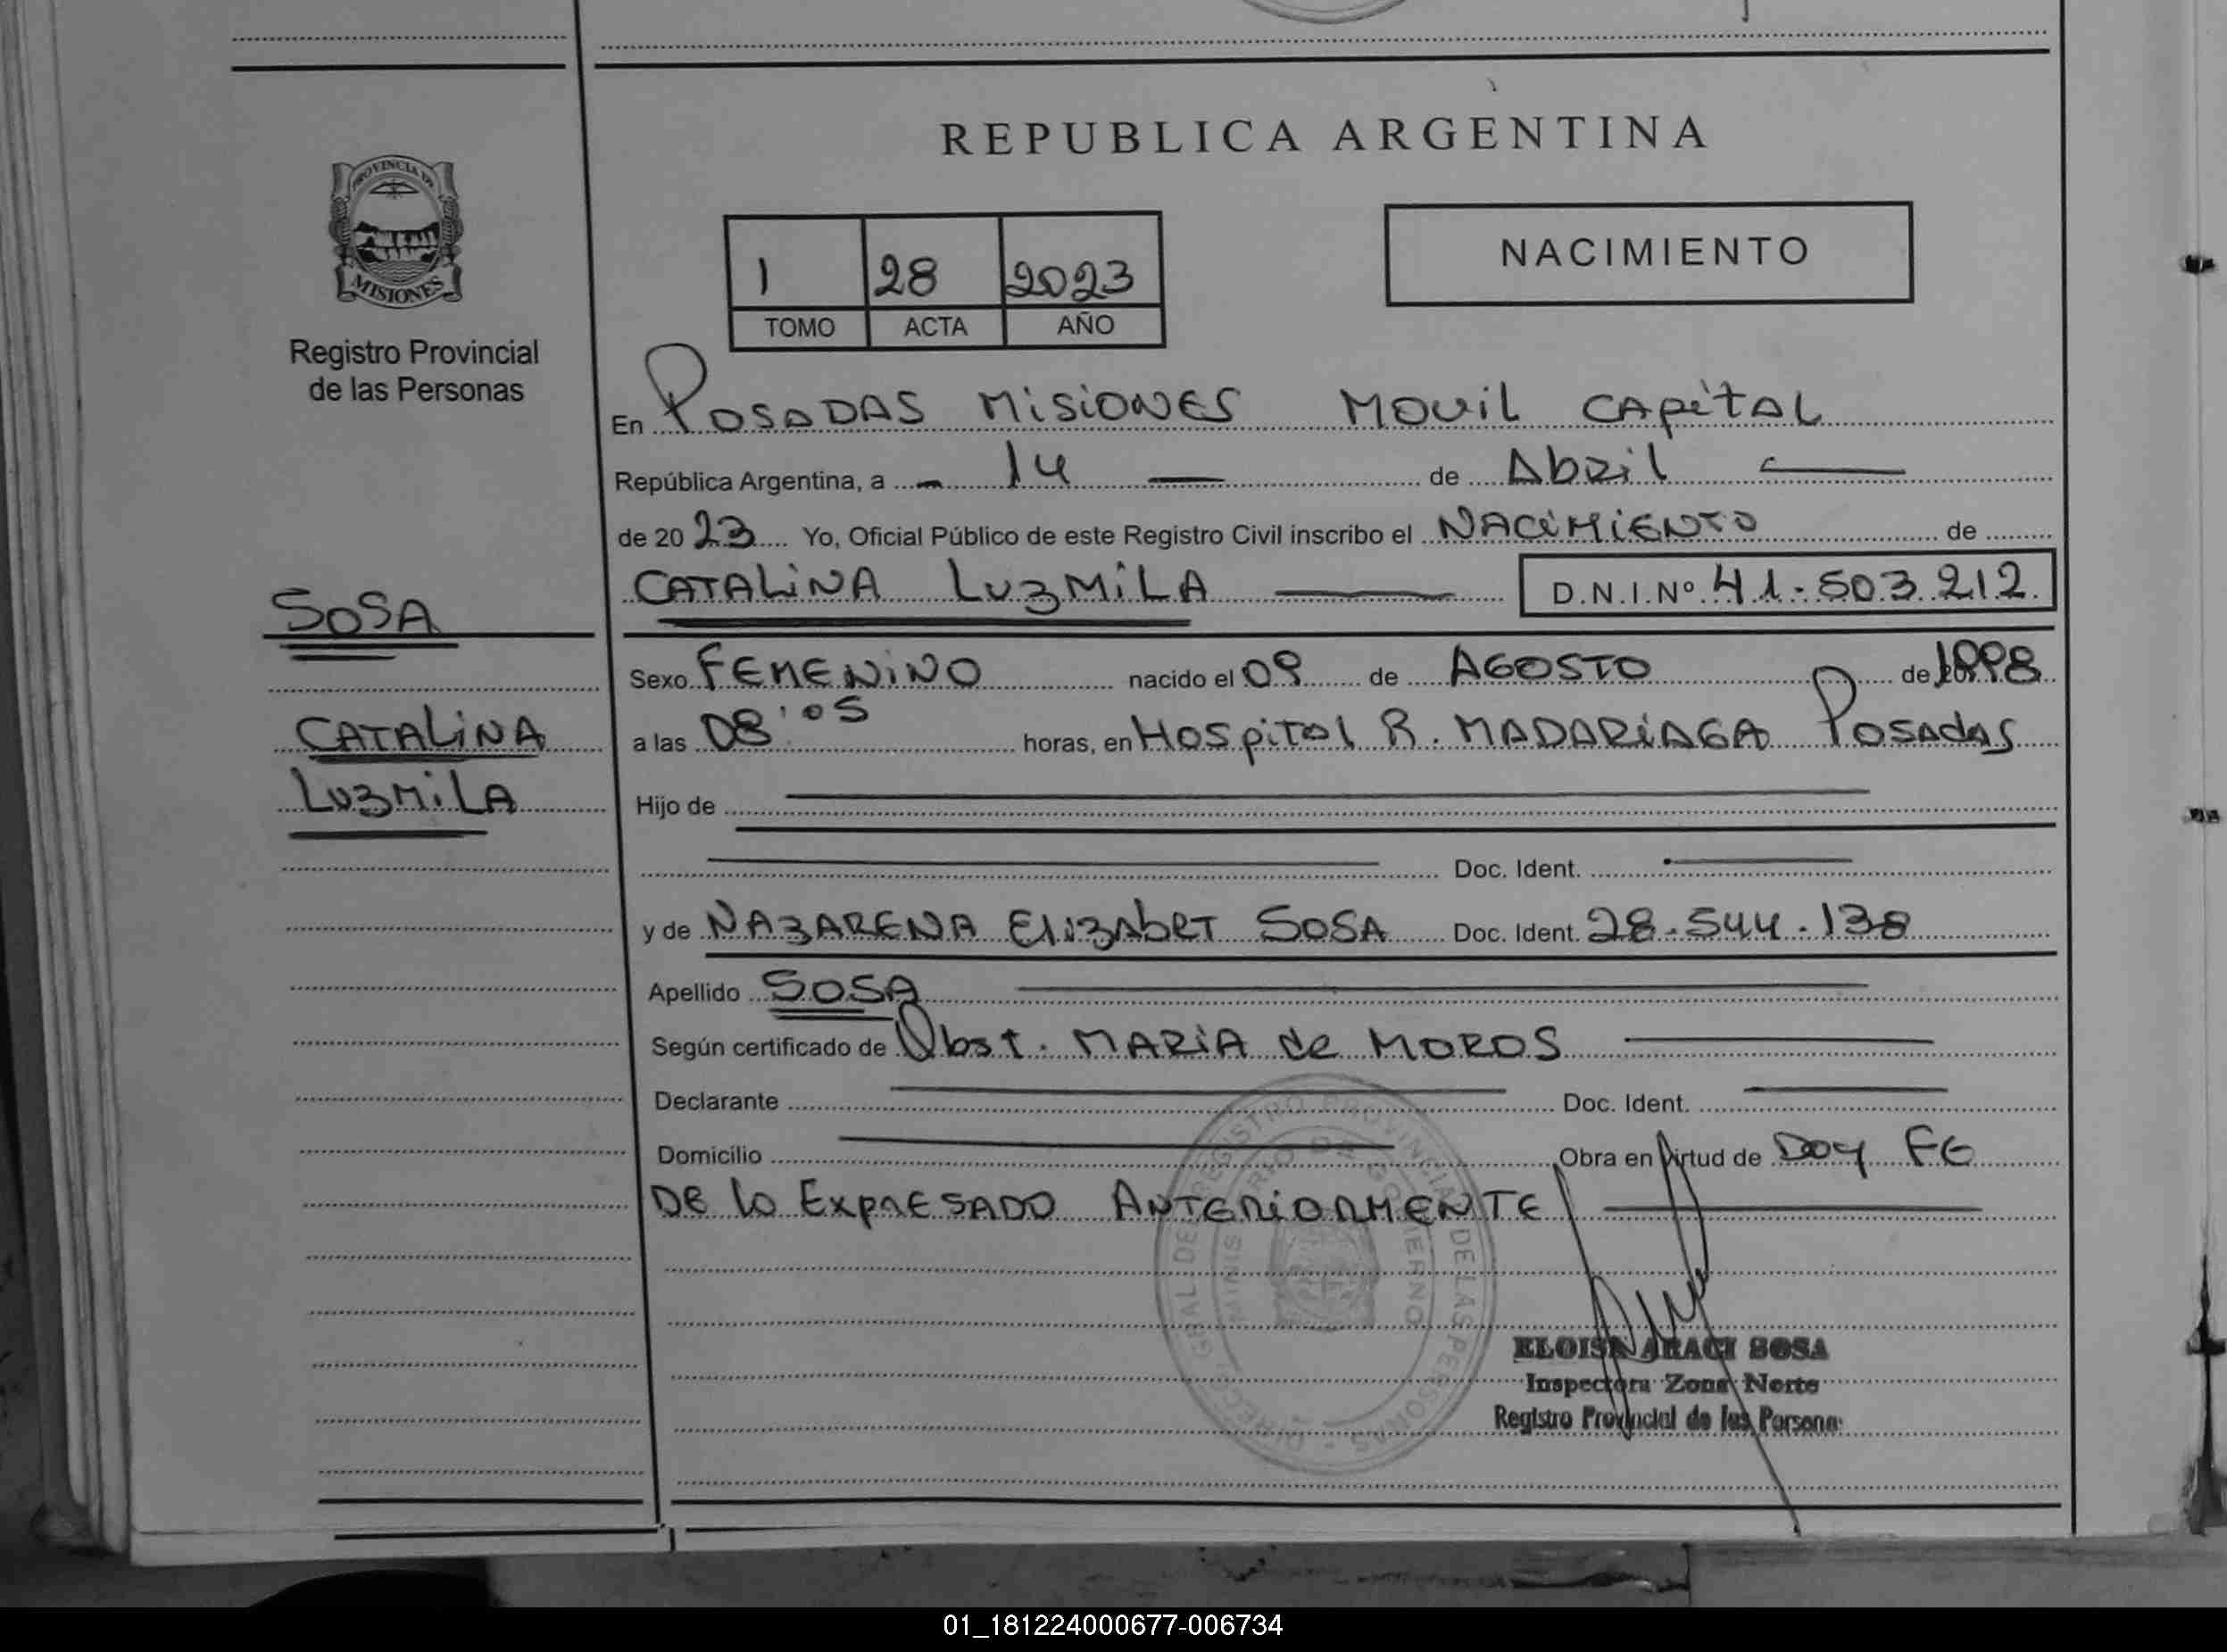 REPUBLICA ARGENTINA
PROVINCIA DE
MISIONES
Registro Provincial
de las Personas
NACIMIENTO
1 28 2023
TOMO ACTA AÑO
En POSADAS MiSiONES MOViL CAPiTAL
República Argentina, a - 14 — de Abril —
de 2023 Yo, Oficial Público de este Registro Civil inscribo el NACiMiENTO de
CATALiNA LUZMiLA — D.N.I.Nº 41.503.212
SOSA
CATALiNA
LUZMiLA
Sexo FEMENiNO nacido el 09 de AGOSTO de 1998
a las 08:05 horas, en HOSpiTAl R. MADARiAGA POSAdAS
Hijo de
Doc. Ident.
y de NAZARENA EliZAbET SOSA Doc. Ident. 28.544.138
Apellido SOSA
Según certificado de Obst. MARiA de MOROS
Declarante Doc. Ident.
Domicilio Obra en virtud de DOY FE
DE lO EXPRESADO ANTERiORMENTE
DIRECC. GRAL DE REGISTRO PROVINCIAL DE LAS PERSONAS
MINISTERIO DE GOBIERNO
ELOISA ARACI SOSA
Inspectora Zona Norte
Registro Provincial de las Personas
01_181224000677-006734